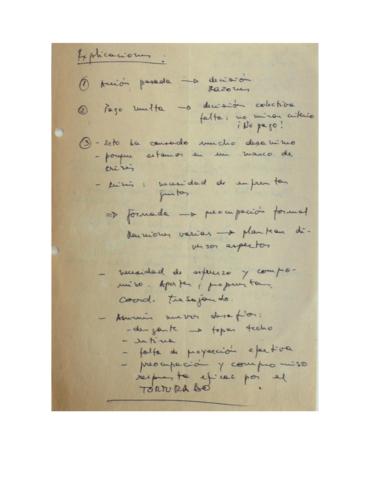 Explicaciones:
① Acción pasada → decisión
razones
② Pago multa → decisión colectiva
falta: no mirar criterio
¡No pago!
③ - Esto ha causado mucho desánimo
- porque estamos en un marco de
crisis
- crisis: necesidad de enfrentar
juntos
⇒ Jornada → preocupación formal
Reuniones varias → plantean di-
versos aspectos
- Necesidad de esfuerzo y compro-
miso. Aportes, propuestas,
coord. trabajando.
- Asumir nuevos desafíos:
- desgaste → topar techo
- rutina
- falta de proyección efectiva
- preocupación y compromiso
respuesta eficaz por el
TORTURADO